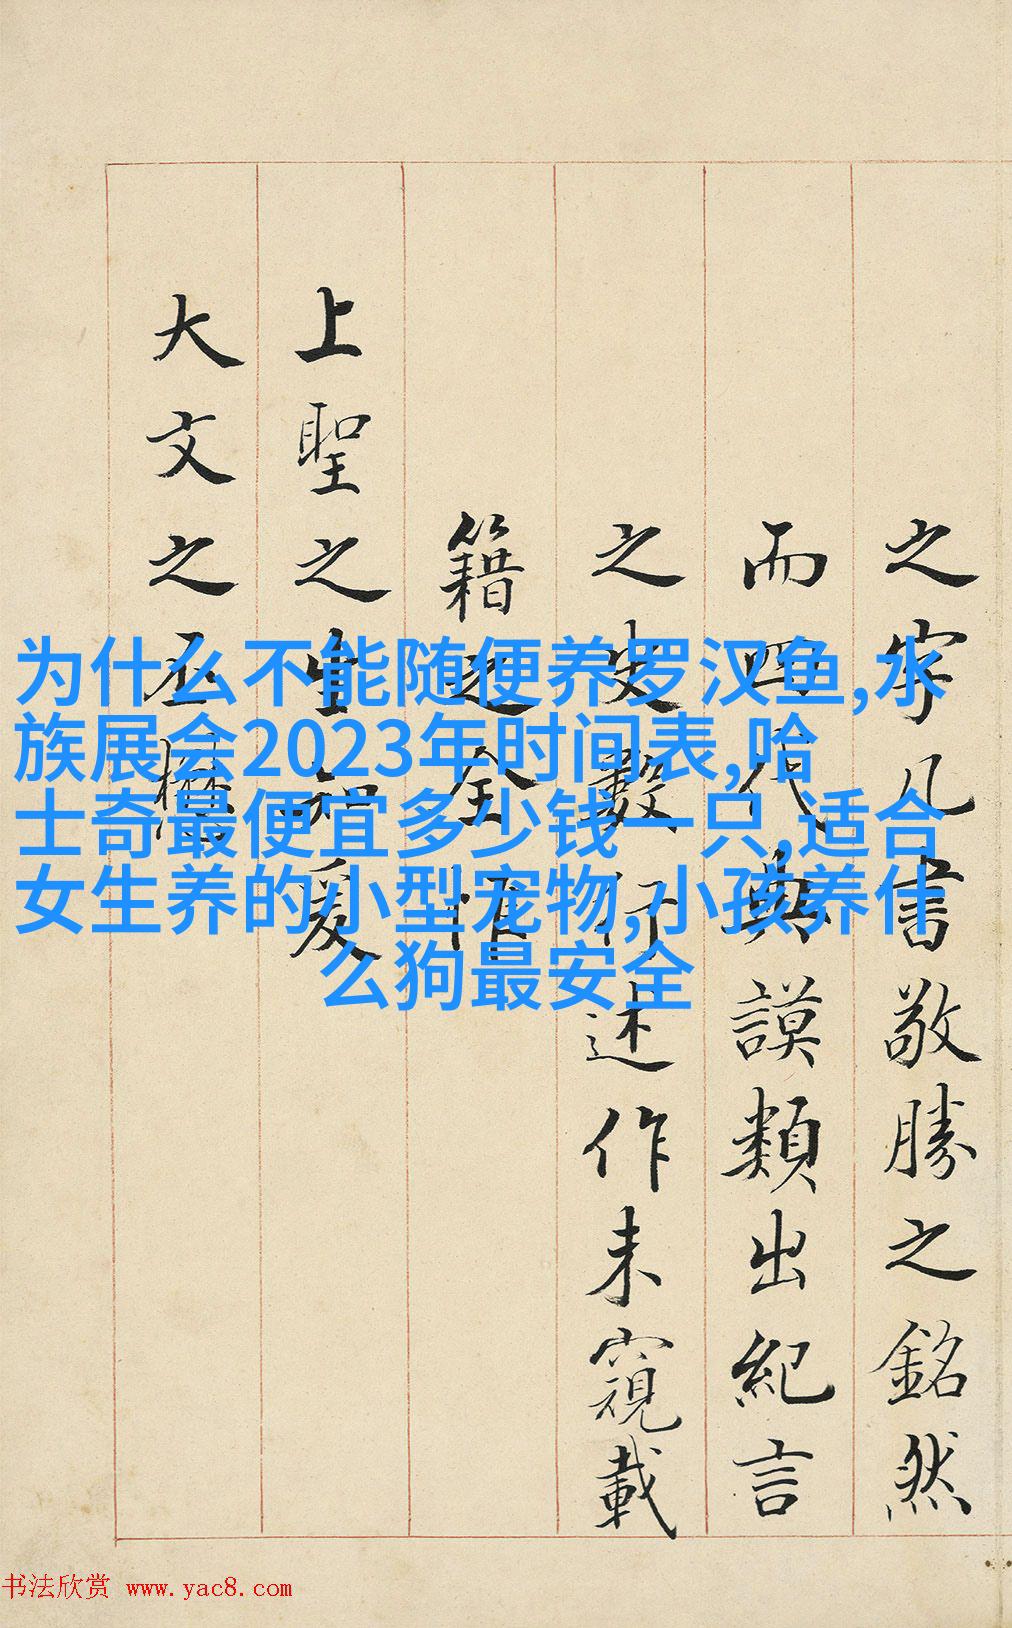 之字凡書敬勝之銘然
而四代典謨類出紀言
之史數行述作未窺載
籍之全惟
上聖之生知爰
大文之丕懋
为什么不能随便养罗汉鱼,水
族展会2023年时间表,哈
士奇最便宜多少钱一只,适合
女生养的小型宠物,小孩养什
么狗最安全
书法欣赏 www.yac8.com